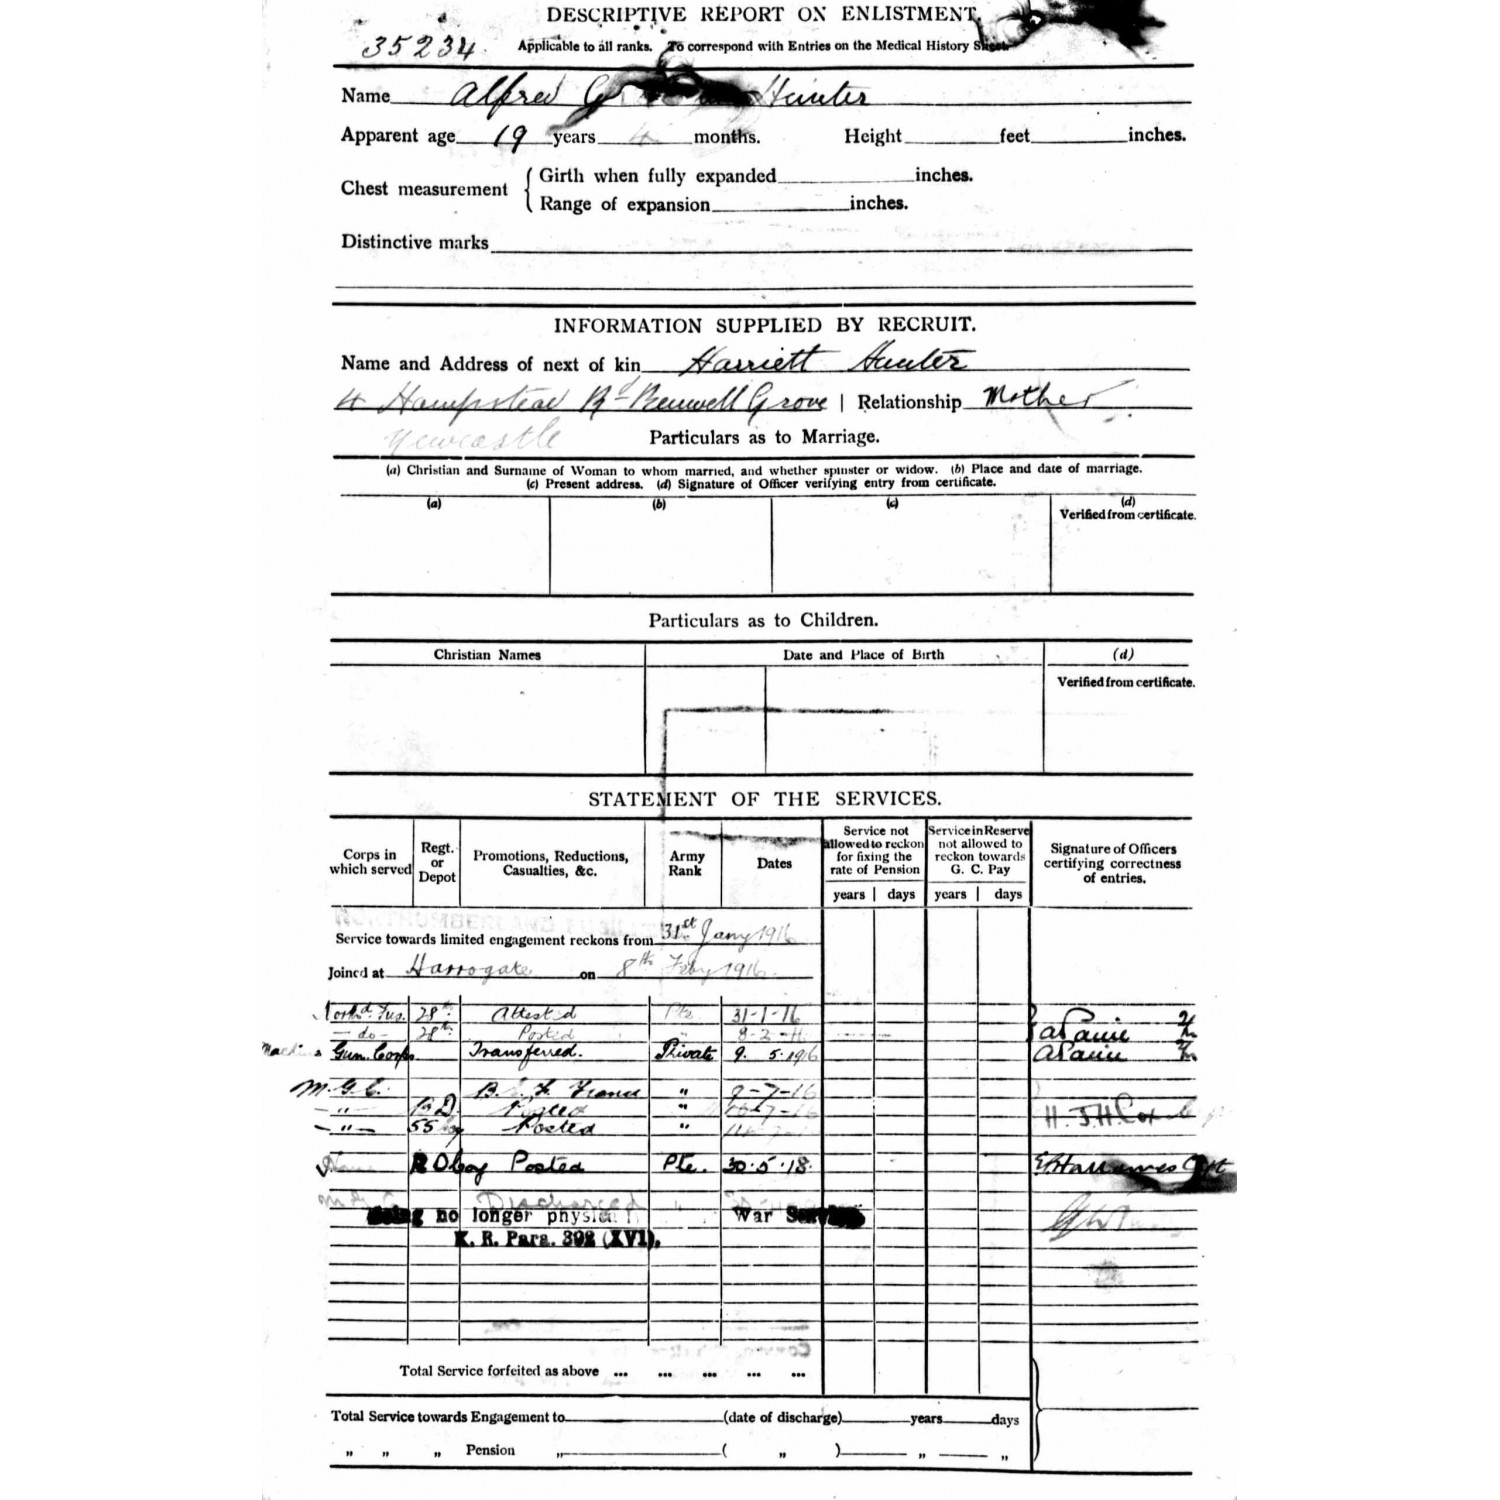 DESCRIPTIVE REPORT ON ENLISTMENT.
35234. Applicable to all ranks. To correspond with Entries on the Medical History Sheet.
Name Alfred Hunter
Apparent age 19 years 4 months. Height feet inches.
Chest measurement { Girth when fully expanded inches.
Range of expansion inches.
Distinctive marks
INFORMATION SUPPLIED BY RECRUIT.
Name and Address of next of kin Harriett Hunter
4 Hampstead Rd Benwell Grove | Relationship Mother
Newcastle Particulars as to Marriage.
(a) Christian and Surname of Woman to whom married, and whether spinster or widow. (b) Place and date of marriage.
(c) Present address. (d) Signature of Officer verifying entry from certificate.
(a) (b) (c) (d)
Verified from certificate.
Particulars as to Children.
Christian Names Date and Place of Birth (d)
Verified from certificate.
STATEMENT OF THE SERVICES.
Corps in which served Regt. or Depot Promotions, Reductions, Casualties, &c. Army Rank Dates Service not allowed to reckon for fixing the rate of Pension Service in Reserve not allowed to reckon towards G. C. Pay Signature of Officers certifying correctness of entries.
years | days years | days
Service towards limited engagement reckons from 31st Jany 1916
Joined at Harrogate on 8th Feby 1916.
North'd. Fus. 28th Attested Pte. 31-1-16
- do - 28th Posted " 8-2-16
Machine Gun Corps Transferred. Private 9. 5. 1916
M. G. C. B. E. F. France " 9-7-16
- " - B.D. Posted "
- " - 55 Coy Posted " H. J.H. Cox
R D Coy Posted Pte. 30.5.18.
M. G. C. Discharged
Being no longer physical War Service
K. R. Para. 392 (XVI).
Total Service forfeited as above ... ... ... ... ...
Total Service towards Engagement to (date of discharge) years days
" " " Pension " ( " ) " "